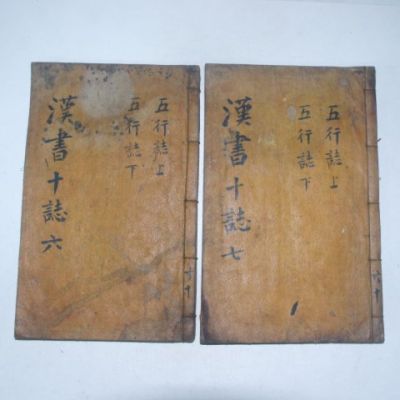 漢書十誌 六
五行誌上
五行誌下
漢書十誌 七
五行誌上
五行誌下